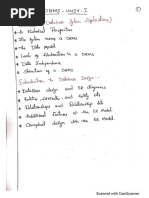 DBMS - UNIT-I
(Database System Applications)
* A Historical Perspective
* File System versus a DBMS
* The Data Model
* Levels of Abstraction in a DBMS
* Data Independence
* Structure of a DBMS
Introduction to Database Design:-
* Database design and ER diagrams
* Entities, Attributes, and Entity sets
* Relationships and Relationship sets
* Additional Features of the ER Model
* Conceptual design with the ER Model.
Scanned with CamScanner